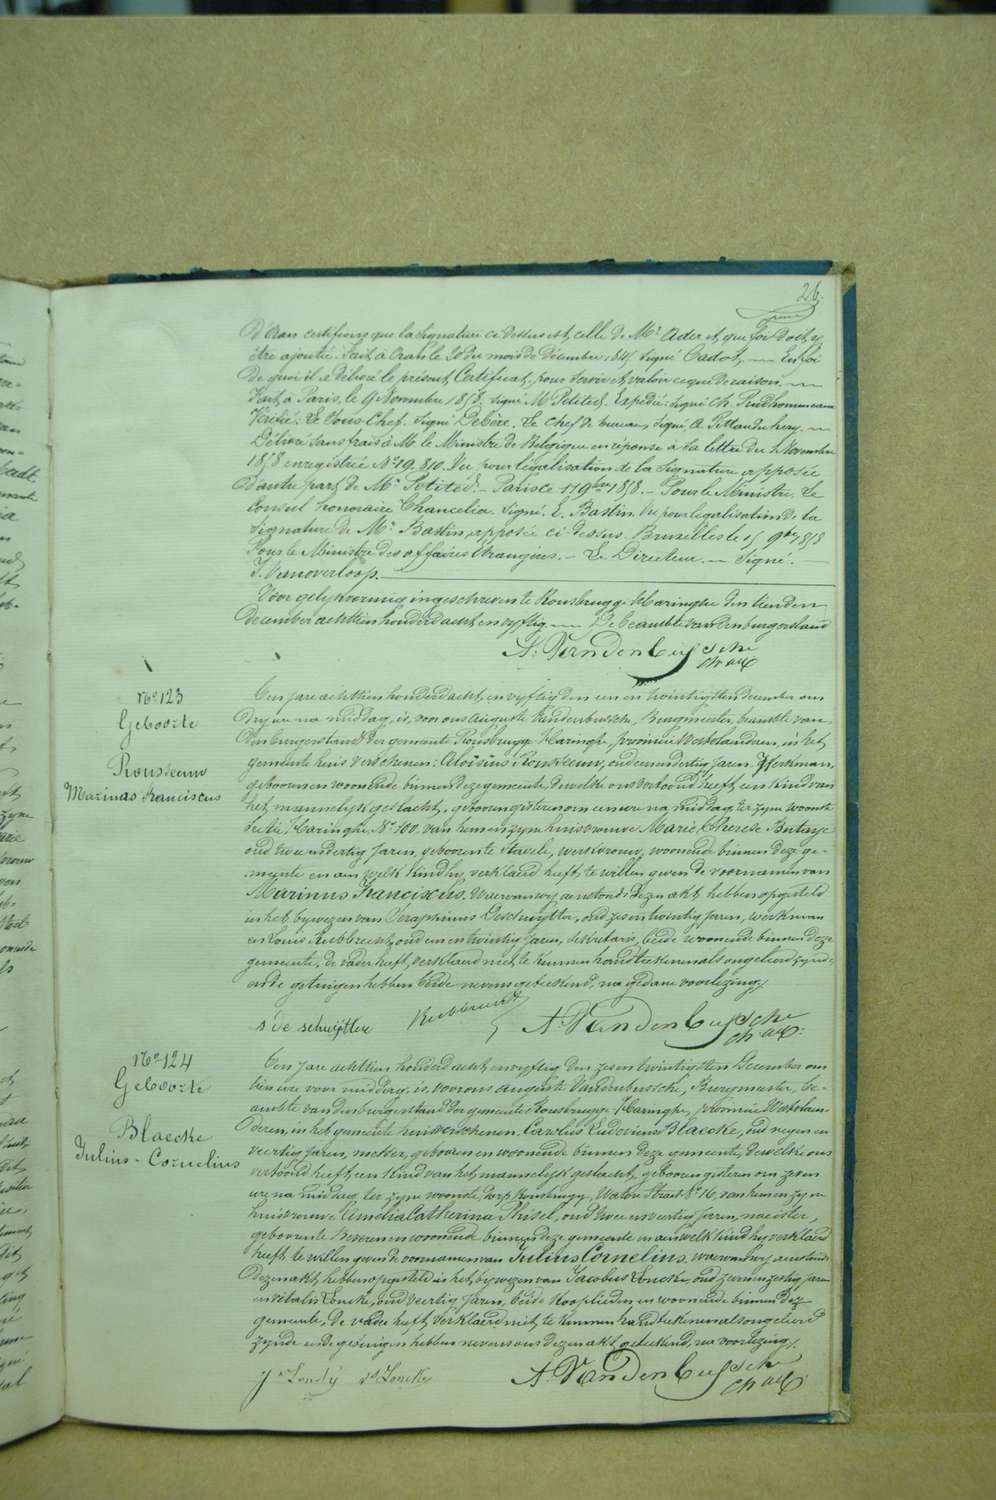 26.
D'Oran certifions que la signature ci dessus est celle de Mr Ader et que foi doit y
être ajoutée. Fait à Oran le 20 du mois de décembre 1847 signé Cadot, — En foi
De quoi il a délivré le présent Certificat, pour servir et valoir ce que de raison. —
Fait à Paris, le 9 Novembre 1858. signé M Petited. Expédié. signé Ch. Prudhommeaux
Vérifié. Le Sous Chef. signé Debère. Le chef de bureau signé A.
Délivré sans frais à M. le Ministre de Belgique en réponse à sa lettre du 4 Novembre
1858 enregistrée No 19,810. Vu pour légalisation de la signature apposée
D'autre part de Mr Petited. — Paris ce 11 9bre 1858. — Pour le Ministre. Le
Consul honoraire Chancelier. signé. E. Bastin. Vu pour légalisation de la
signature de Mr Bastin apposée ci-dessus. Bruxelles le 15 9bre 1858
Pour le Ministre des affaires étrangères. — Le Directeur. — signé. —
J. Vanoverloop.
Voor gelykvormig ingeschreven te Rousbrugge-Haringhe den tienden
December achttien honderd acht en vyftig. — De beambte van den burgerstand
A. Vandenbussche
No 123
Geboorte
Rousseeuw
Marinus Franciscus
Ten jare achttien honderd acht en vyftig den een en twintigsten december om
dry ure na middag, is, voor ons Auguste Vandenbussche, Burgmeester, beambte van
den burgerstand der gemeente Rousbrugge-Haringhe, provincie Westvlaenderen, in het
gemeente huis verschenen: Aloisius Rousseeuw, oud een en dertig jaren, Werkman,
geboren en woonende binnen deze gemeente, dewelke ons vertoond heeft een kind van
het mannelyk geslacht, geboren gisteren om een ure na middag, ter zyne woonste
sectie Haringhe No 100. van hem en zyne huisvrouwe Marie Therese Butaye
oud twee en dertig jaren, geboren te Stavele, werkvrouw, woonende binnen deze ge-
meente en aen welk kind hy verklaerd heeft te willen geven de voornamen van
Marinus Franciscus. Waervan wy aenstonds dezen akt hebben opgesteld
in het bywezen van Seraphinus Deschuytter, oud zes en twintig jaren, werkman
en Louis Rubbrecht, oud een en twintig jaren, sekretaris, beide woonende binnen deze
gemeente, de vader heeft verklaerd niet te kunnen handteekenen als ongeleerd zynde,
en de getuigen hebben beide nevens geteekend, na gedane voorlezing.
S de schuytter Rubbrecht A. Vandenbussche
No 124
Geboorte
Blaecke
Julius-Cornelius
Ten jare achttien honderd acht en vyftig den zes en twintigsten December om
tien ure voor middag, is, voor ons Auguste Vandenbussche, Burgmeester, be-
ambte van den burgerstand der gemeente Rousbrugge-Haringhe, provincie Westvlaen-
deren, in het gemeente huis verschenen. Carolus Ludovicus Blaecke, oud negen en
veertig jaren, metser, geboren en woonende binnen deze gemeente, dewelke ons
vertoond heeft een kind van het mannelyk geslacht, geboren gisteren om zeven
ure na middag, ter zyne woonste, dorp Rousbrugge, Watou Straet No 16, van hem en zyne
huisvrouwe Amelia Catherina Thisel, oud twee en veertig jaren, naeister,
geboren te Beveren en woonende binnen deze gemeente en aen welk kind hy verklaerd
heeft te willen geven de voornamen van Julius Cornelius, waervan wy aenstonds
dezen akt hebben opgesteld in het bywezen van Jacobus Loncke, oud zeven en zestig jaren
en Vitalis Loncke, oud veertig jaren, beide kooplieden en woonende binnen deze
gemeente, De vader heeft verklaerd niet te kunnen handteekenen als ongeleerd
zynde en de getuigen hebben nevens ons dezen akt geteekend, na voorlezing.
J Loncke Vs Loncke A. Vandenbussche